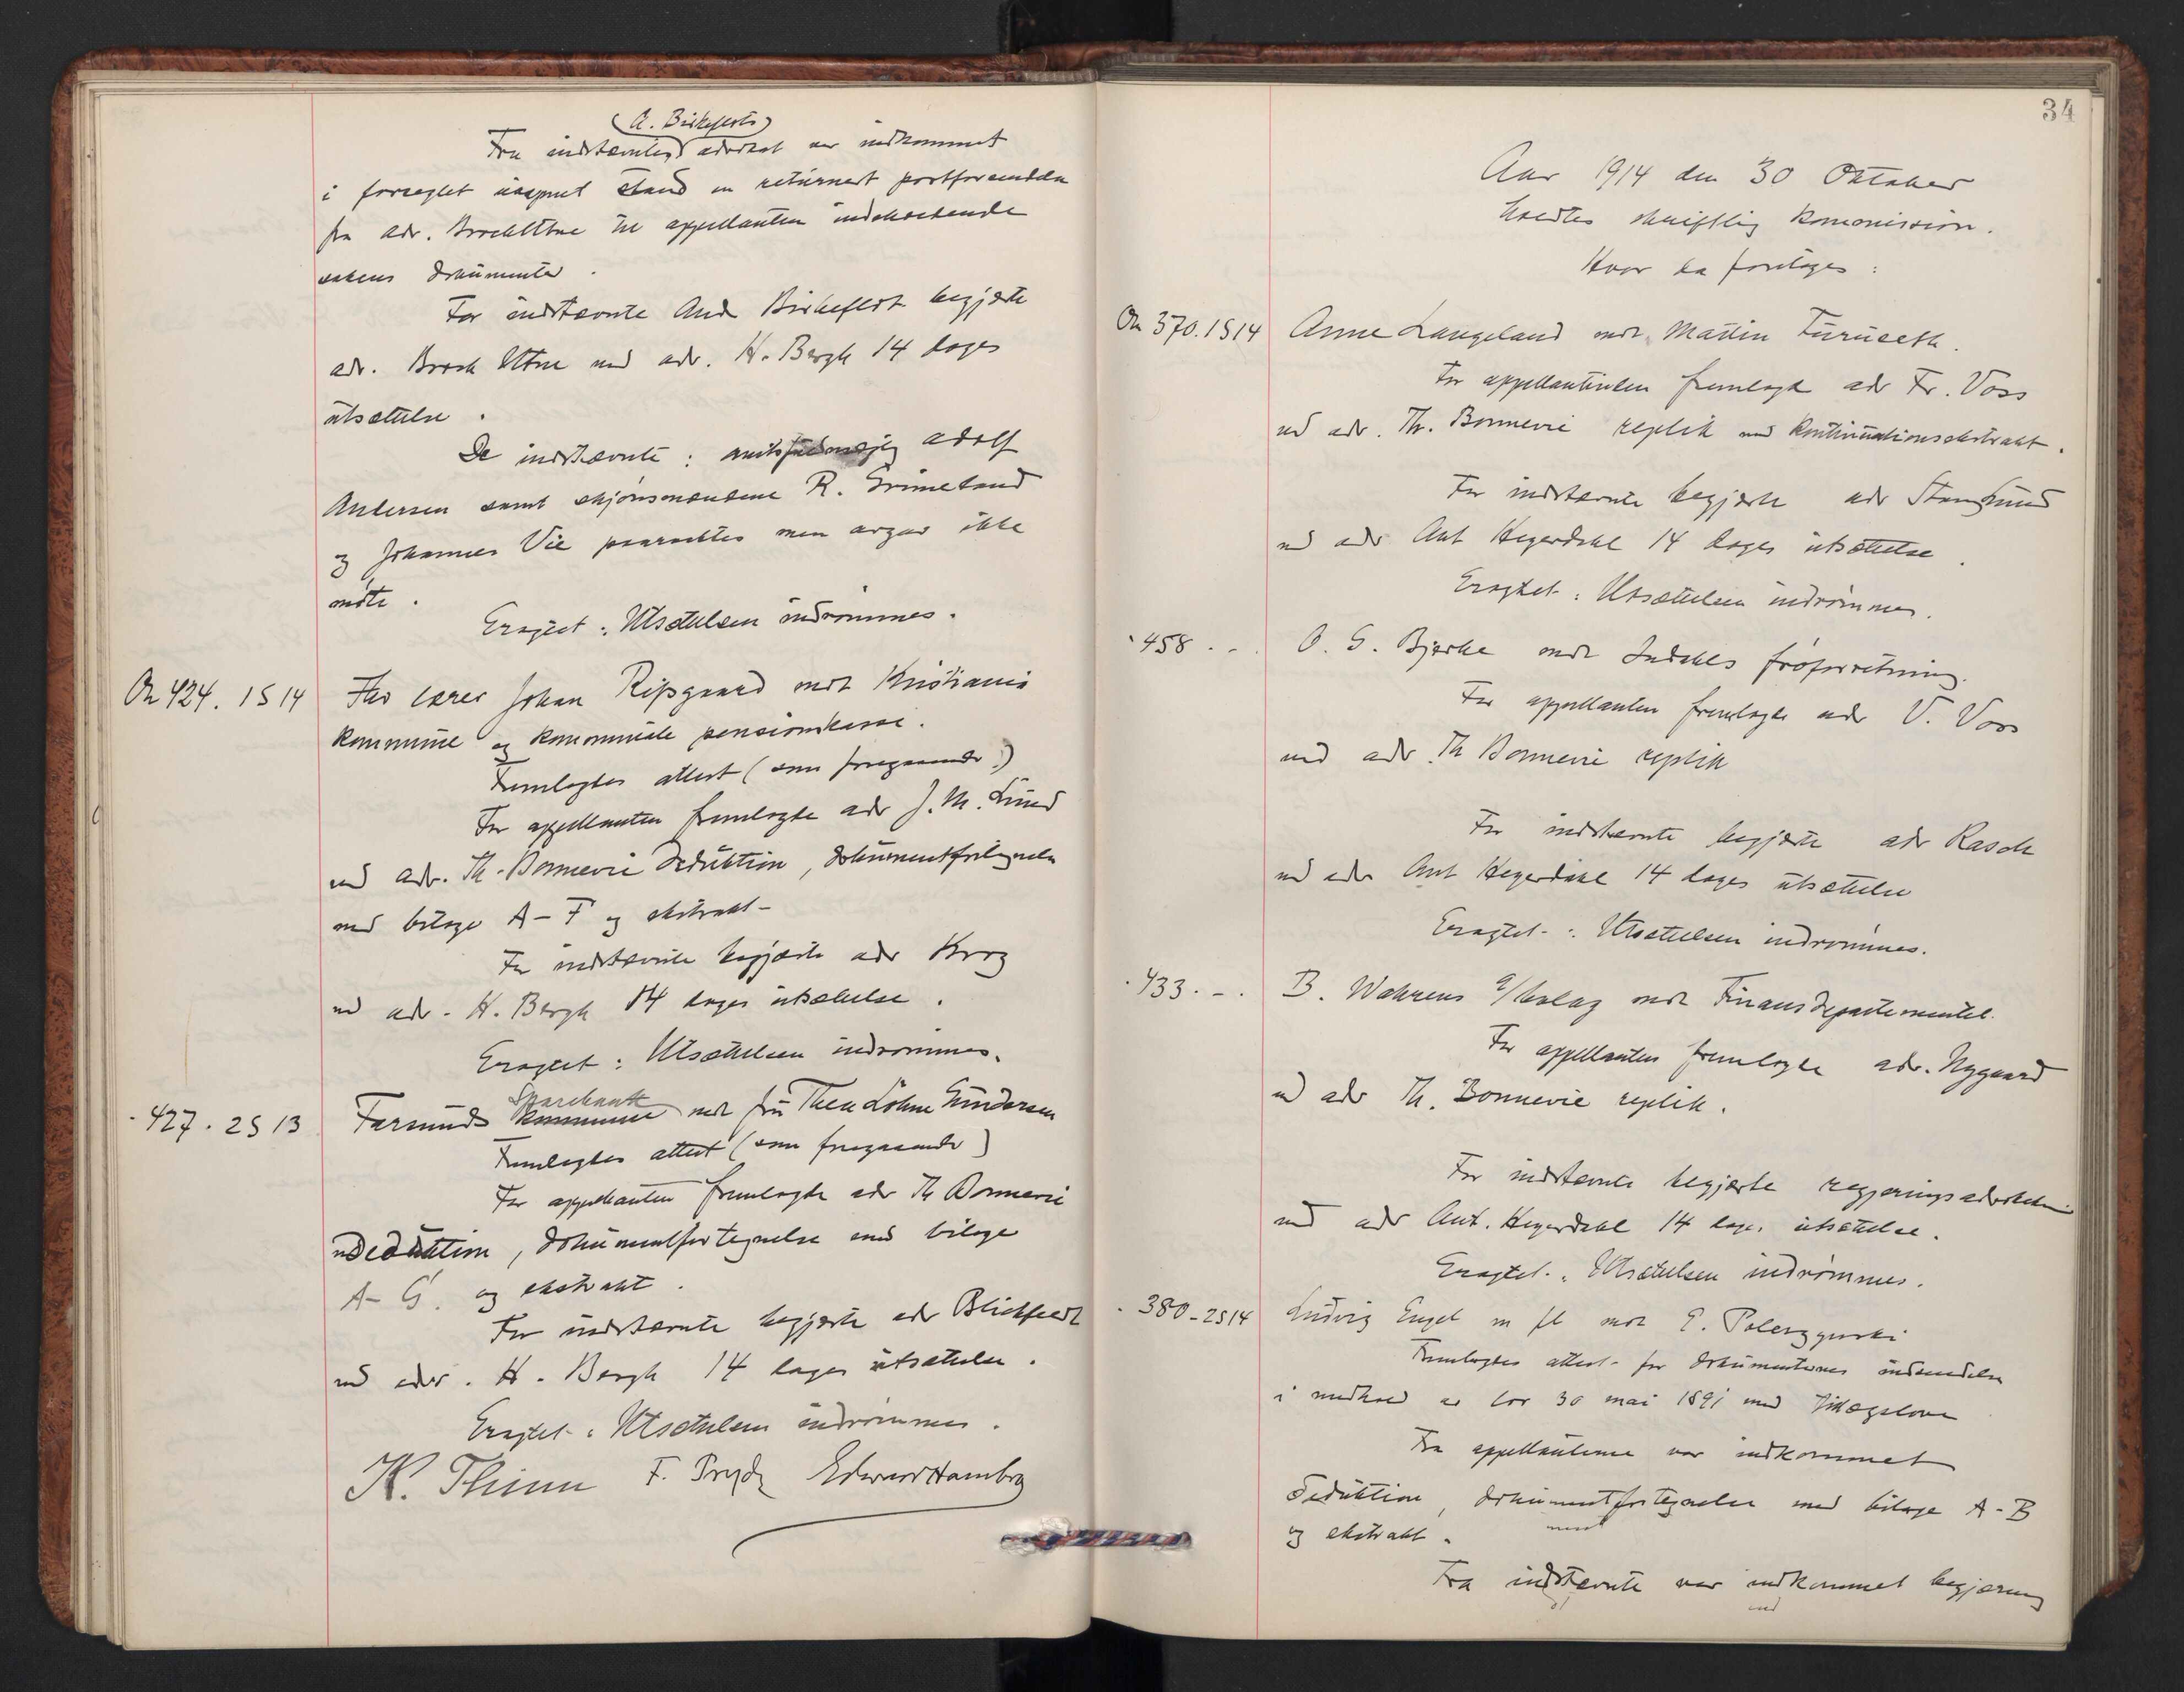 (A. Birkeflots)
Fra indstævntes advokat var indkommet
i forseglet uaapnet stand en returnert postforsendelse
fra adv. Brock Utne til appellanten indeholdende
sakens dokumenter.
For indstævnte And Birkeflot begjærte
adv. Brock Utne ved adv. H. Bergh 14 dages
utsættelse.
De indstævnte: amtsfuldmægtig Adolf
Andersen samt skjønsmændene R. Grimeland
og Johannes Vie paaraabtes men avgav ikke
møte.
Eragtet: Utsættelsen indrømmes.
On 424. 1 S 14
Fhv lærer Johan Ripsgaard mot Kristiania
kommune og kommunale pensionskasse.
Fremlagdes attest (som foregaaende)
For appellanten fremlagde adv J. M. Lund
ved adv. Th. Bonnevie deduktion, dokumentfortegnelse
med bilage A-F og ekstrakt-
For indstævnte begjærte adv Krog
ved adv. H. Bergh 14 dages utsættelse.
Eragtet: Utsættelsen indrømmes.
- 427. 2 S 13
Farsunds Sparebank kommune mot fru Thea Lohne Gundersen
Fremlagdes attest (som foregaaende)
For appellanten fremlagde adv Th Bonnevie
deduktion, dokumentfortegnelse med bilage
A-G. og ekstrakt.
For indstævnte begjærte adv Blichfeldt
ved adv. H. Bergh 14 dages utsættelse.
Eragtet: Utsættelsen indrømmes.
K. Thinn F. Pryds Edvard Hambro
34
Aar 1914 den 30 Oktober
holdtes skriftlig kommission.
Hvor da foretoges:
On 370. 1 S 14
Anne Langeland mot Martin Furuseth.
For appellantinden fremlagde adv Fr. Voss
ved adv. Th. Bonnevie replik med kontinuationsekstrakt.
For indstævnte begjærte adv Stang Lund
ved adv Ant Hegerdahl 14 dages utsættelse.
Eragtet: Utsættelsen indrømmes.
- 458. -.
O. G. Bjerke mot frøforretning.
For appellanten fremlagde adv V. Voss
ved adv. Th Bonnevie replik
For indstævnte begjærte adv Rasch
ved adv Ant Hegerdahl 14 dages utsættelse
Eragtet: Utsættelsen indrømmes.
- 433. -.
B. Wahrens a/bolag mot Finansdepartementet.
For appellanten fremlagde adv. Nygaard
ved adv Th. Bonnevie replik.
For indstævnte begjærte regjeringsadvokaten
ved adv Ant. Hegerdahl 14 dages utsættelse.
Eragtet: Utsættelsen indrømmes.
- 380 - 2 S 14
Ludvig Engel m fl mot E. Polerzynski
Fremlagdes attest for dokumenternes indsendelse
i medhold av lov 30 mai 1891 med tillægslove
Fra appellanterne var indkommet
deduktion, dokumentfortegnelse med bilage A-B
og ekstrakt.
Fra indstævnte var indkommet begjæring